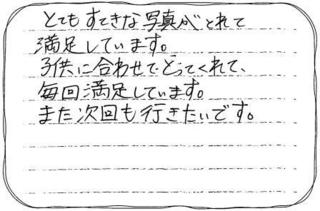 とてもすてきな写真がとれて
満足しています。
子供に合わせてとってくれて、
毎回満足しています。
また次回も行きたいです。